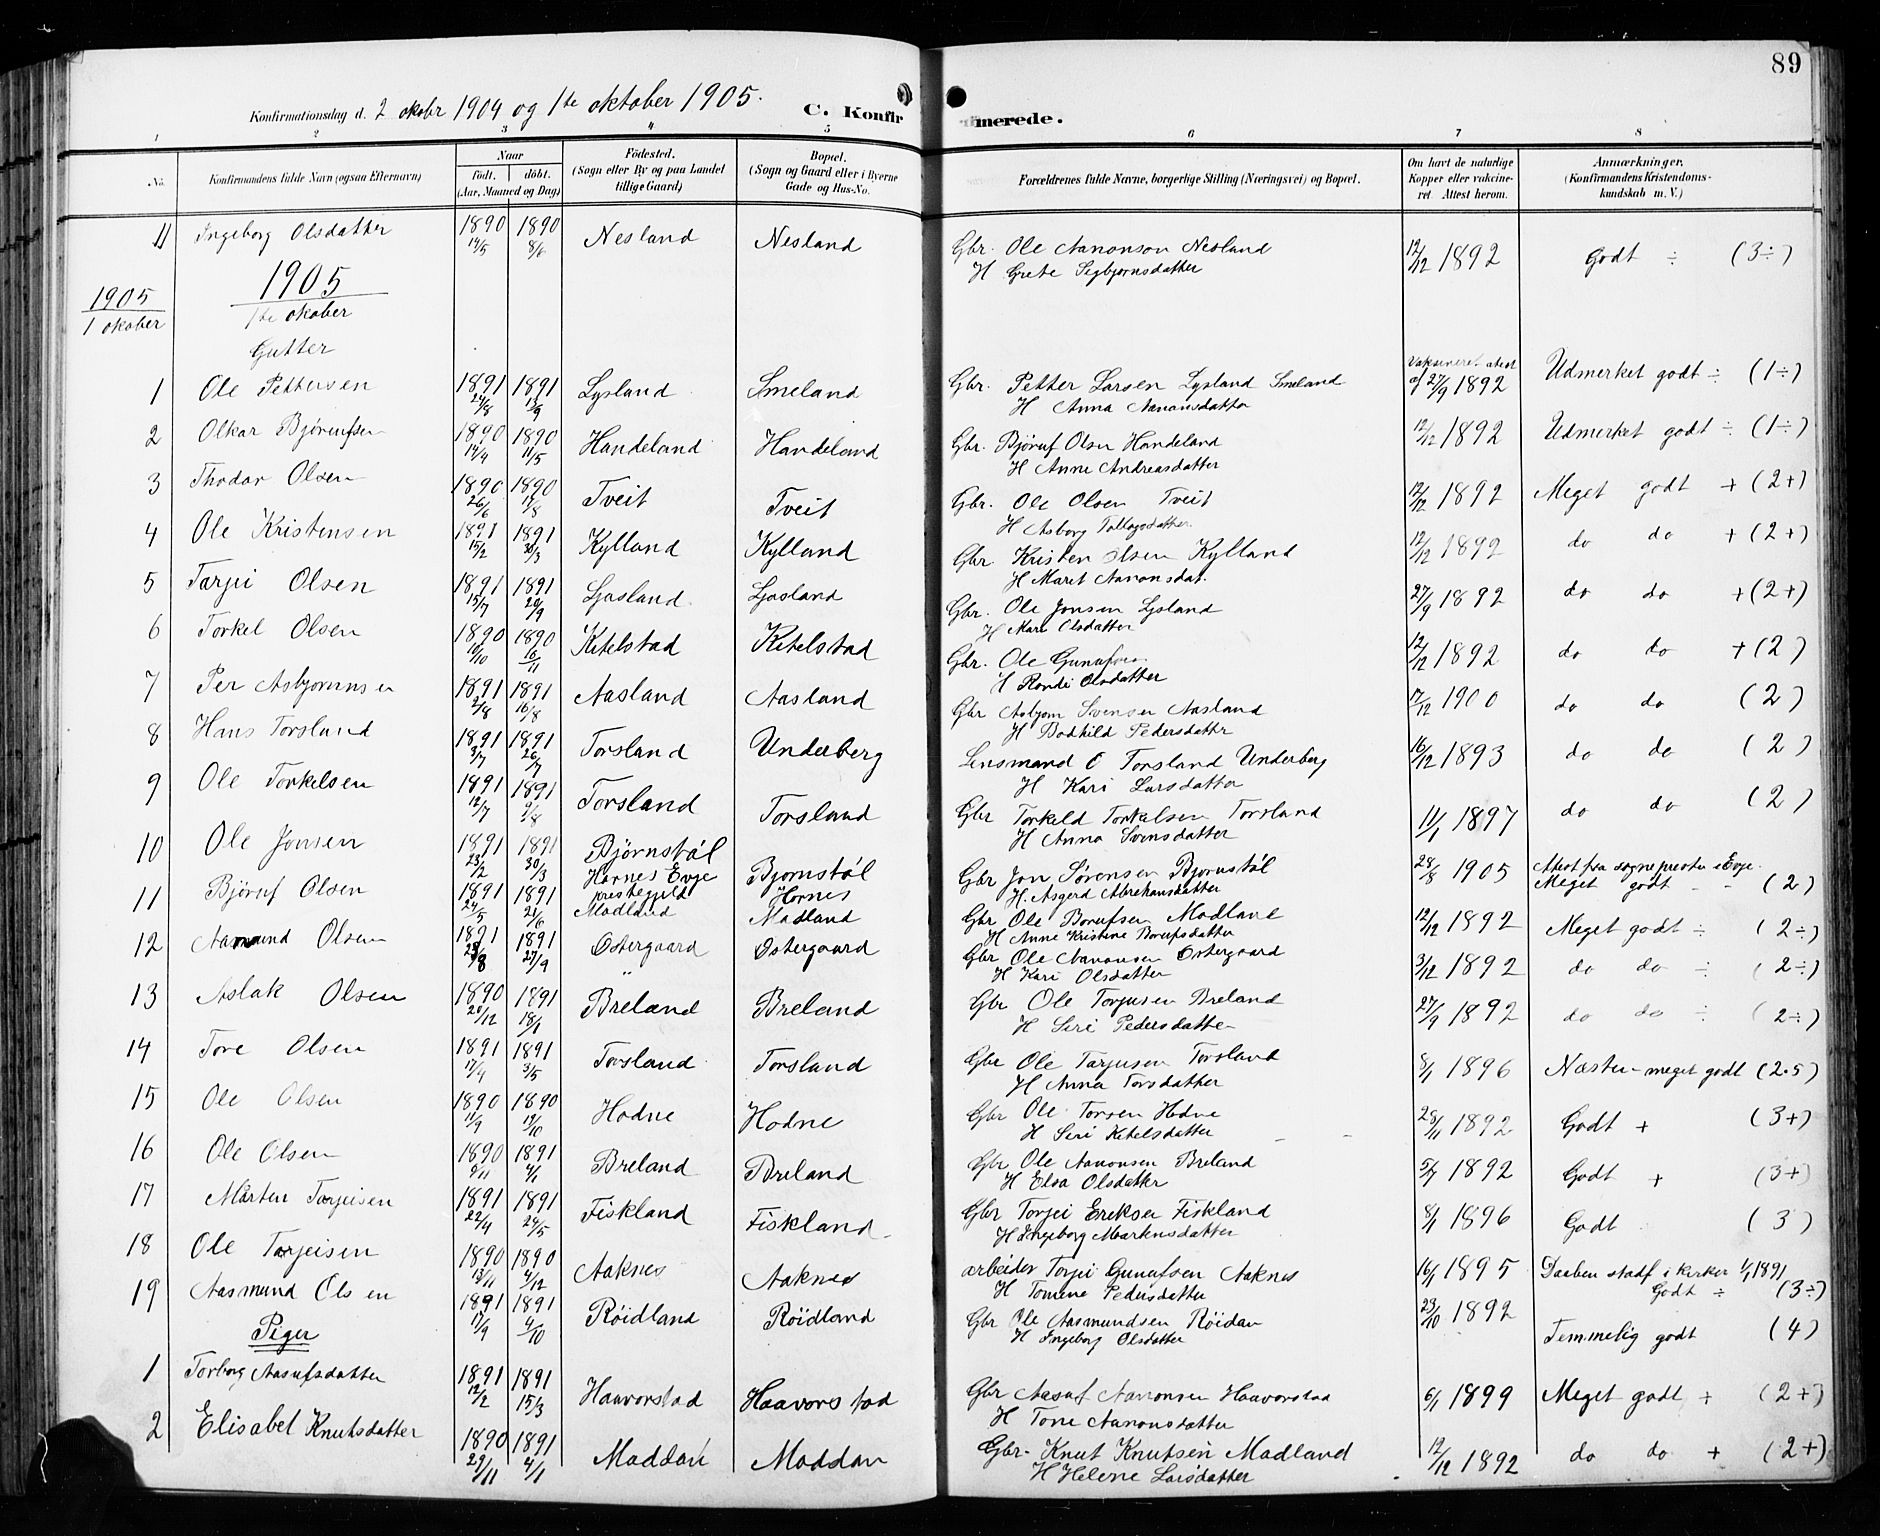 89
Konfirmationsdag d. 2 okobr 1904 og 1te oktober 1905. C. Konfirmerede.
1 2 3 4 5 6 7 8
No. Konfirmandens fulde Navn (ogsaa Efternavn) Naar födt. döbt. (Aar, Maaned og Dag) Födested. (Sogn eller By og paa Landet tillige Gaard) Bopæl. (Sogn og Gaard eller i Byerne Gade og Hus-No. Forældrenes fulde Navne, borgerlige Stilling (Næringsvei) og Bopæl. Om havt de naturlige Kopper eller vakcineret. Attest herom. Anmærkninger. (Konfirmandens Kristendomskundskab m. V.)
11 Ingeborg Olsdatter 1890 14/5 1890 8/6 Nesland Nesland Gbr. Ole Aanonson Nesland 12/12 1892 Godt ÷ (3÷)
H Grete Sigbjørnsdatter
1905
1 okober
1905
1te okober
Gutter
1 Ole Pettersen 1891 24/8 1891 13/9 Lysland Smeland Gbr. Petter Larsen Lysland Smeland Vaksineret atest af 27/9 1892 Udmerket godt ÷ (1÷)
H Anna Aanonsdatter
2 Olkar Bjørufsen 1890 14/4 1890 11/5 Handeland Handeland Gbr. Bjøruf Olsen Handeland 12/12 1892 Udmerket godt ÷ (1÷)
H Anne Andreasdatter
3 Thodar Olsen 1890 26/6 1890 17/8 Tveit Tveit Gbr. Ole Olsen Tveit 12/12 1892 Meget godt + (2+)
H Asborg Tallagsdatter
4 Ole Kristensen 1891 15/2 1891 30/3 Kylland Kylland Gbr. Kristen Olsen Kylland 12/12 1892 do do + (2+)
H Maret Aanonsdat.
5 Tarjei Olsen 1891 15/7 1891 20/9 Ljosland Ljosland Gbr. Ole Jonsen Ljsland 27/9 1892 do do + (2+)
H Mari Olsdatter
6 Torkel Olsen 1890 10/10 1890 16/11 Ketelstad Ketelstad Gbr. Ole Gunufsen 12/12 1892 do do + (2)
H Rondi Olsdatter
7 Per Asbjornnsen 1891 2/8 1891 16/8 Aasland Aasland Gbr Asbjorn Svensen Aasland 17/12 1900 do do (2)
H Bodhild Pedersdattr
8 Hans Torsland 1891 3/7 1891 26/7 Torsland Underberg Lensmand O Torsland Underberg 16/12 1893 do do (2)
H Kari Larsdatter
9 Ole Torkelsen 1891 12/7 1891 9/8 Torsland Torsland Gbr Torkeld Torkelsen Torsland 11/1 1897 do do (2)
H Anna Svensdatter
10 Ole Jonsen 1891 23/2 1891 30/3 Bjørnstøl Hornes Evje prestegjeld Bjornstøl Hornes Gbr Jon Sørensen Bjornstøl 28/8 1905 Atest fra sogneprester i Evje.
H. Asgerd Abrehamsdatter Meget godt - - (2)
11 Björuf Olsen 1891 24/5 1891 21/6 Modland Madland Gbr Ole Borufsen Modland 12/12 1892 Meget godt ÷ (2÷)
H Anne Kristine Borufsdatter
12 Aamund Olsen 1891 23/8 1891 27/9 Ostergaard Østergaard Gbr Ole Aanonsen Ostergaard 3/12 1892 do do ÷ (2÷)
H Kari Olsdatter
13 Aslak Olsen 1890 20/12 1891 18/1 Breland Breland Gbr Ole Torjusen Breland 27/9 1892 do do ÷ (2÷)
H Siri Pedersdatter
14 Tore Olsen 1891 17/4 1891 3/5 Torsland Torsland Gbr Ole Tarjusen Torsland 8/1 1896 Næsten meget godt (2.5)
H Anna Torsdatter
15 Ole Olsen 1890 11/9 1890 19/10 Hodne Hodne Gbr Ole Torsen Hodne 28/11 1892 Godt + (3+)
H Siri Ketelsdatter
16 Ole Olsen 1890 9/11 1891 4/1 Breland Breland Gbr Ole Aanonsen Breland 5/7 1892 Godt + (3+)
H Elsa Olsdatter
17 Mårten Tarjeisen 1891 22/4 1891 24/5 Fiskland Fiskland Gbr Torjei Eriksen Fiskland 8/1 1896 Godt (3)
H Ingeborg Martensdatter
18 Ole Tarjeisen 1890 13/11 1890 4/12 Aaknes Aaknes arbeider Torjei Gunufsen Aaknes 16/1 1895 Daaben stadf i kirken 1/1 1891
H Tomine Pedersdatter Godt ÷ (3÷)
19 Aasmund Olsen 1891 17/9 1891 4/10 Røidland Røidland Gbr Ole Aasmundsen Røidan 23/10 1892 Temmelig godt (4)
H Ingeborg Olsdatter
Piger
1 Torborg Aasufsdatter 1891 12/2 1891 15/3 Haavorstad Haavorstad Gbr Aasuf Aanonsen Haavorstad 6/1 1899 Meget godt + (2+)
H Tone Aanonsdatter
2 Elisabet Knutsdatter 1890 29/11 1891 4/1 Moddan Moddan Gbr. Knut Knutsen Modland 12/12 1892 do do + (2+)
H Helene Larsdatter